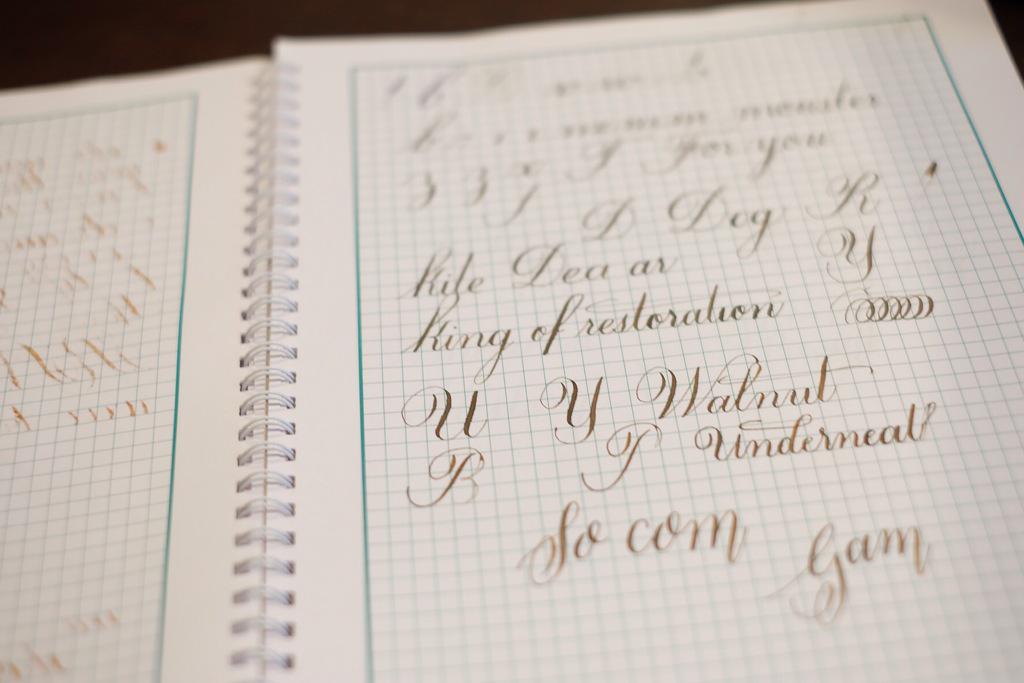 monster
3 3 j J For you
D Dog R
Kile Dea ar Y
King of restoration
U Y Walnut
B T Underneat
So com Gam